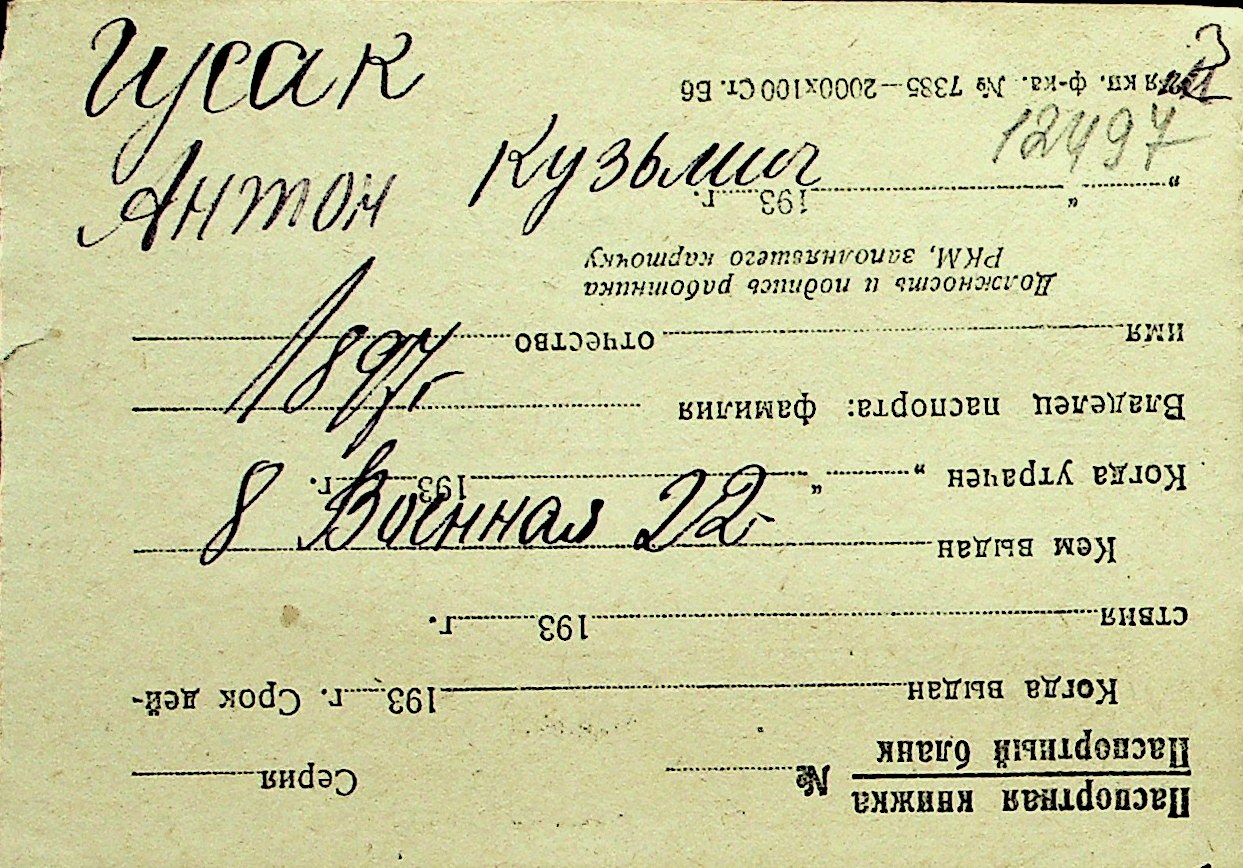 Гусак
Антон Кузьмич
1897 г.
8 Военная 22
12497
Паспортная книжка
Паспортный бланк
№ Серия
Когда выдан 193 г. Срок дей-
ствия 193 г.
Кем выдан
Когда утрачен „ “ 193 г.
Владелец паспорта: фамилия
имя отчество
Должность и подпись работника
РКМ, заполнявшего карточку
„ “ 193 г.
кп. ф-ка. № 7385—2000х100 Ст. Б6